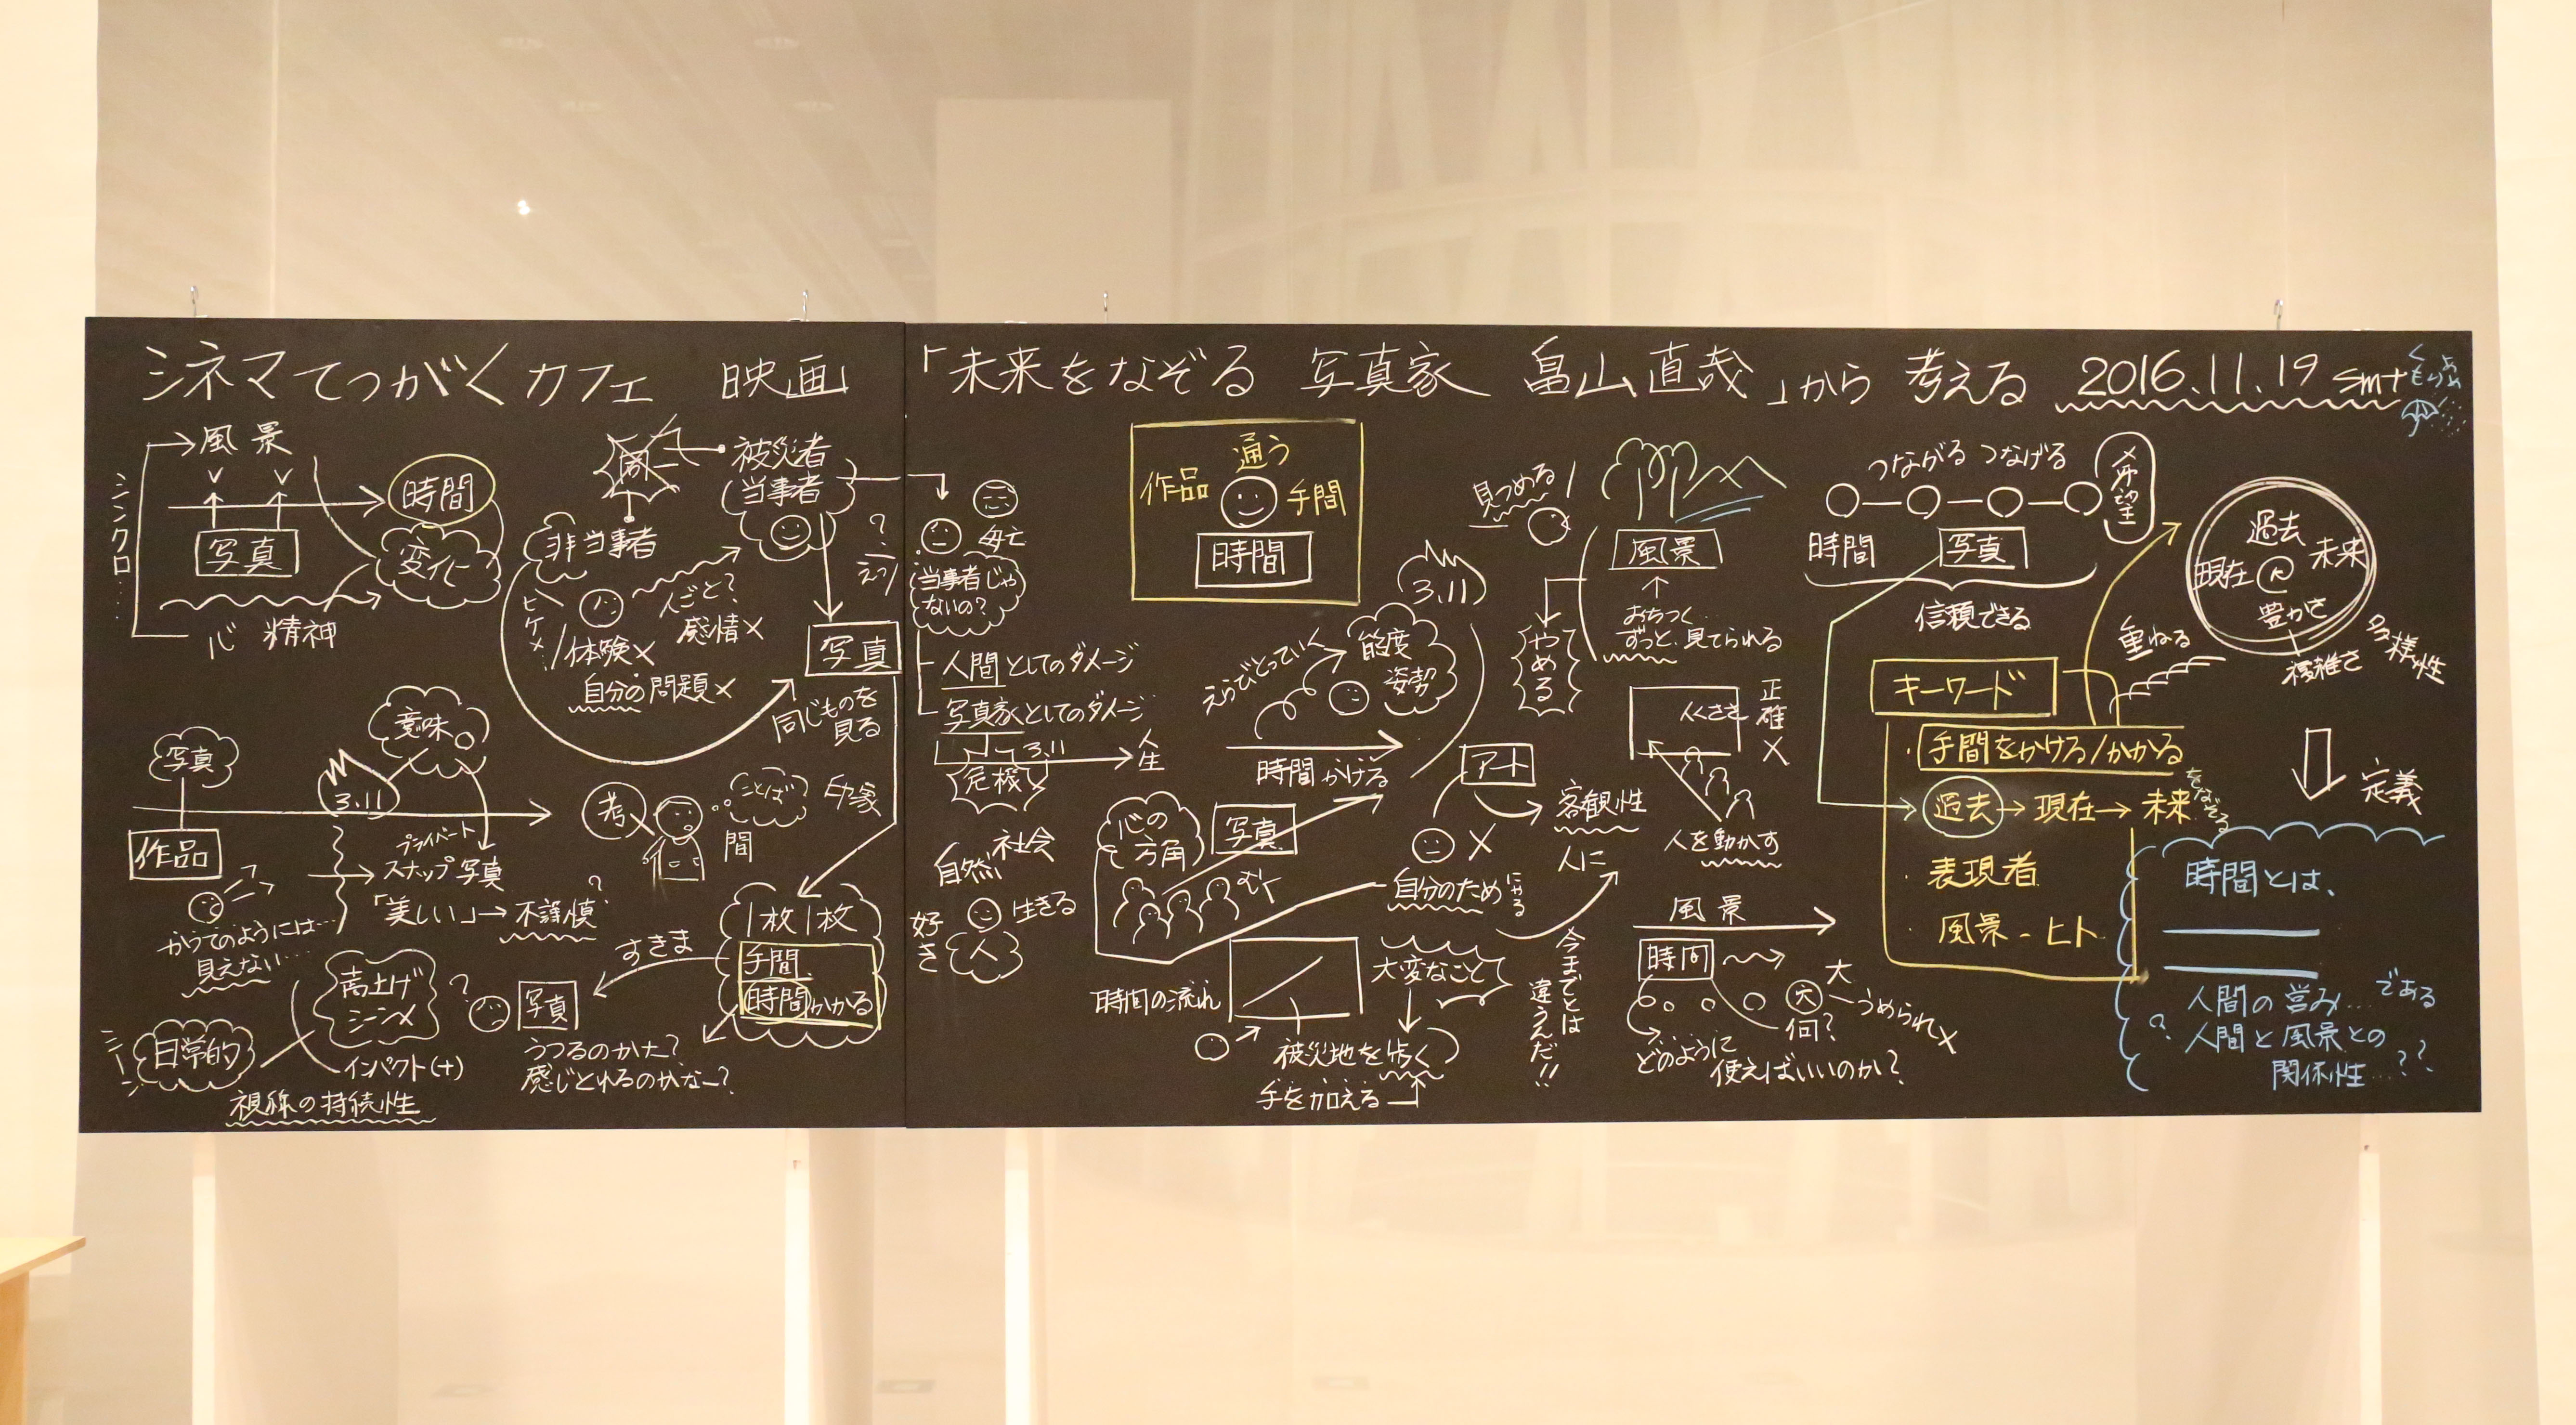 シネマてつがくカフェ 映画「未来をなぞる 写真家 畠山直哉」から 考える 2016.11.19 smt
くもり
あめ
風景
時間
写真
変化
シンクロ...
心 精神
被災者
当事者
非当事者
ヒケメ
人ごと?
感情×
体験×
自分の問題×
写真
同じものを
見る
写真
作品
3.11
意味
プライベート
スナップ写真
「美しい」→不謹慎?
かつてのようには...
見えない...
日常的
嵩上げ
シーン
インパクト(+)
視線の持続性
考
ことば
印象
間
1枚1枚
手間
時間かかる
すきま
?
写真
うつるのかな?
感じとれるのかなー?
母亡
当事者じゃ
ないの?
人間としてのダメージ
写真家としてのダメージ
3.11
人生
危機
自然
社会
好き
生きる
人
通う
作品
手間
時間
見つめる
3.11
態度
姿勢
えらびとっていく
時間かける
心の
方角
写真
むく
アート
客観性
人に
自分のため
時間の流れ
大変なこと
被災地を歩く
手を加える
今までとは
違うんだ!!
風景
おちつく
ずっと見てられる
やめる
正確×
人を動かす
風景
時間
何?
大
うめられ×
どのように
使えばいいのか?
つながる つなげる
希望
時間
写真
信頼できる
キーワード
・手間をかける/かかる
過去→現在→未来
をなぞる
・表現者
・風景-ヒト
過去
現在
未来
豊かさ
重ねる
複雑さ
多様性
定義
時間とは、
人間の営み...である
?人間と風景との
関係性...??